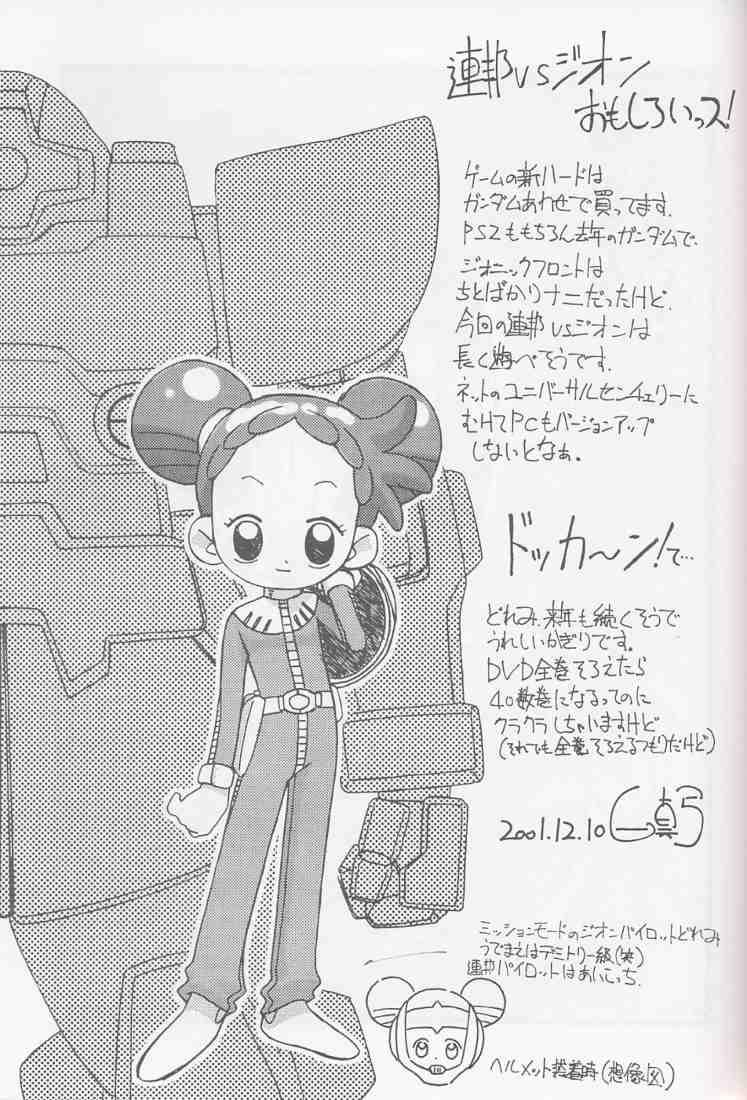 連邦VSジオン
おもしろいっス!
ゲームの新ハードは
ガンダムあわせで買ってます.
PS2ももちろん去年のガンダムで.
ジオニックフロントは
ちとばかりナニだったけど.
今回の連邦VSジオンは
長く遊べそうです.
ネットのユニバーサルセンチュリーに
むけてPCもバージョンアップ
しないとなぁ。
ドッカ〜ン!て…
どれみ、来年も続くそうで
うれしいかぎりです。
DVD全巻そろえたら
40数巻になるってのに
クラクラしちゃいますけど
(それでも全巻そろえるつもりだけど)
2001.12.10
ミッションモードのジオンパイロットどれみ
うでまえはデミトリー級(笑)
連邦パイロットはあいこっち.
ヘルメット装着時(想像図)